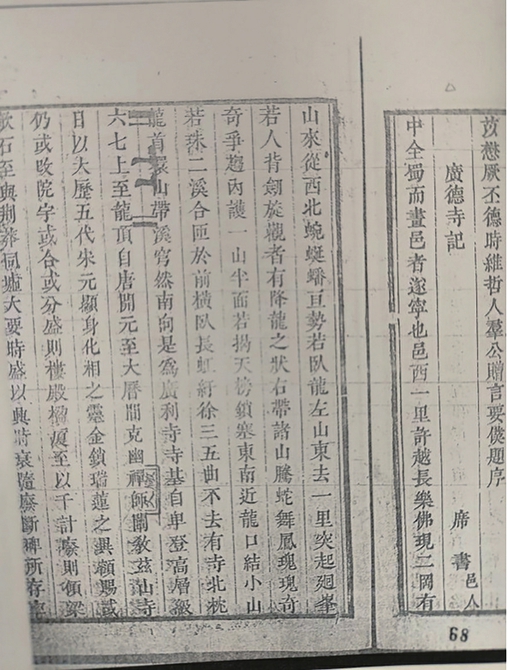 茲懋厥丕德時維哲人羣公贈言要僕題序
廣德寺記
席書邑人
中全蜀而畫邑者遂寧也邑西一里許越長樂佛現二岡有
山來從西北蜿蜒蟠亘勢若臥龍左山東去一里突起廻峯
若人背劍旋觀者有降龍之狀右帶諸山騰蛇舞鳳瑰瑰奇
奇爭趨內護一山半面若揭天榜鎖塞東南近龍口結小山
若珠二溪合匝於前橫臥長虹紆徐三五曲不去有寺北枕
龍首環山帶溪窅然南向是爲廣利寺寺基自卑登高層級
六七上至龍頂自唐開元至大曆間克幽禪師闡敎玆山寺
日以大歷五代宋元顯身化相之靈金鎖瑞蓮之異頒賜裁
仍或改院字或合或分盛則樓殿楹廈至以千計廢則頹梁
欹石至與荆莽同墟大要時盛以興時衰隨廢斷碑所存
68